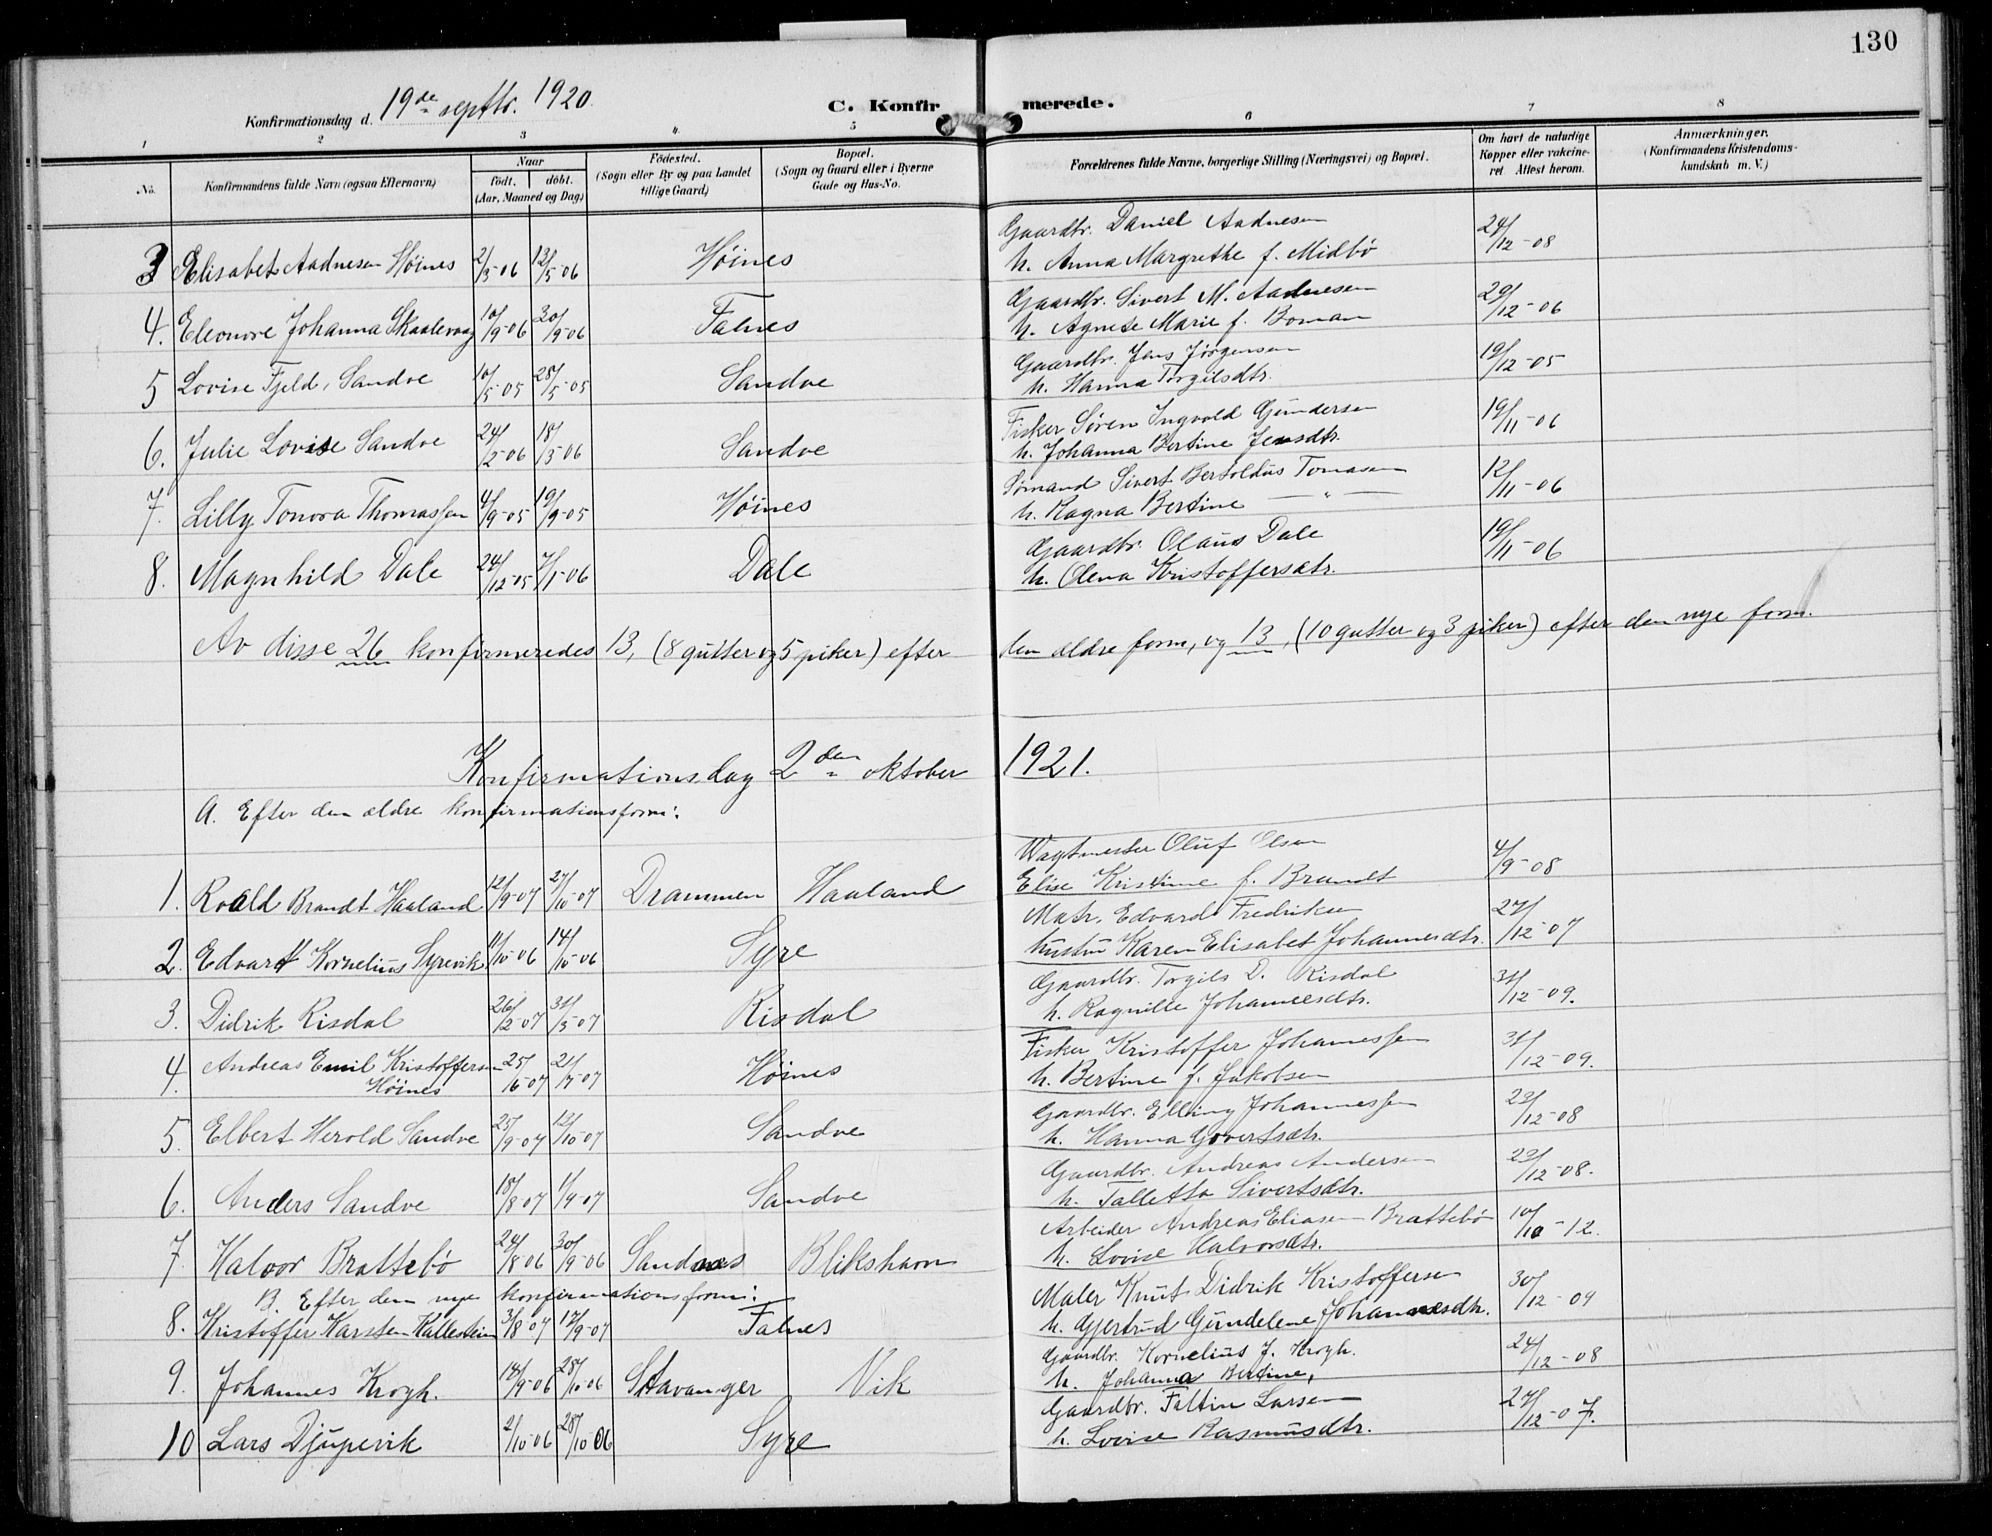 130
Konfirmationsdag d. 19de septbr. 1920.
C. Konfirmerede.
1 2 3 4 5 6 7 8
No.
Konfirmandens fulde Navn (ogsaa Efternavn)
Naar
født. døbt.
(Aar, Maaned og Dag)
Fødested.
(Sogn eller By og paa Landet
tillige Gaard)
Bopæl.
(Sogn og Gaard eller i Byerne
Gade og Hus-No.
Forældrenes fulde Navne, borgerlige Stilling (Næringsvei) og Bopæl.
Om havt de naturlige
Kopper eller vakcine-
ret Attest herom.
Anmærkninger.
(Konfirmandens Kristendoms-
kundskab m. V.)
Gaardbr. Daniel Aadnesen
3 Elisabet Aadnesen Høines 2/3-06 13/5-06 Høines h. Anna Margrethe f. Midbö 24/12-08
Gaardbr. Sivert M. Aadnesen
4. Eleonore Johanna Skaalevaag 10/9-06 30/9-06 Falnes h. Agnete Marie f. Boman 29/12-06
Gaardbr. Jens Jörgensen
5 Lovise Fjeld, Sandve 10/5-05 28/5-05 Sandve h. Hanna Torgilsdtr. 19/12-05
Fisker Søren Ingvald Gundersen
6. Julie Lovise Sandve 24/2-06 18/3-06 Sandve h. Johanna Bertine Jensdtr. 19/11-06
Sømand Sivert Bertoldus Tomasen
7. Lilly Tonora Thomassen 4/9-05 19/9-05 Høines h. Ragna Bertine — " — 12/11-06
Gaardbr. Olaus Dale
8. Magnhild Dale 24/12-05 7/1-06 Dale h. Olena Kristoffersdtr. 19/11-06
Av disse 26 konfirmeredes 13, (8 gutter og 5 piker) efter den ældre form, og 13, (10 gutter og 3 piker) efter den nye form.
Konfirmationsdag 2den oktober 1921.
A. Efter den ældre konfirmationsform:
Vagtmester Oluf Olsen
1. Roald Brandt Haaland 12/9-07 27/10-07 Drammen Haaland Elise Kristine f. Brandt 4/9-08
Matr. Edvard Fredriksen
2. Edvart Kornelius Syrevik 11/10-06 14/10-06 Syre hustru Karen Elisabet Johannesdtr. 27/12-07
Gaardbr. Torgils D. Risdal
3. Didrik Risdal 26/2-07 31/3-07 Risdal h. Ragnille Johannesdtr. 31/12-09.
Fisker Kristoffer Johannessen
4. Andreas Emil Kristoffersen
Høines 25/6-07 21/7-07 Høines h. Bertine f. Jakobsen 31/12-09.
Gaardbr. Elling Johannessen
5. Elbert Herold Sandve 25/9-07 13/10-07 Sandve h. Hanna Govertsdtr. 23/12-08
Gaardbr. Andreas Andersen
6. Anders Sandve 18/8-07 1/9-07 Sandve h. Talletta Sivertsdtr. 23/12-08.
Arbeider Andreas Eliasen Brattebö
7. Halvor Brattebö 24/8-06 30/9-06 Sandnes Blikshavn h. Lovise Halvorsdtr. 10/10-12.
B. Efter den nye konfirmationsform:
Maler Knut Didrik Kristoffersen
8. Kristoffer Karsten Kallestein 3/8-07 17/9-07 Falnes h. Gjertrud Gundelene Johannesdtr. 30/12-09
Gaardbr. Kornelius J. Krogh.
9. Johannes Krogh. 14/9-06 28/10-06 Stavanger Vik h. Johanna Bertine, 24/12-08
Gaardbr. Faltin Larsen
10 Lars Djupevik 2/10-06 28/10 06 Syre h. Lovise Rasmusdtr. 27/12-07.